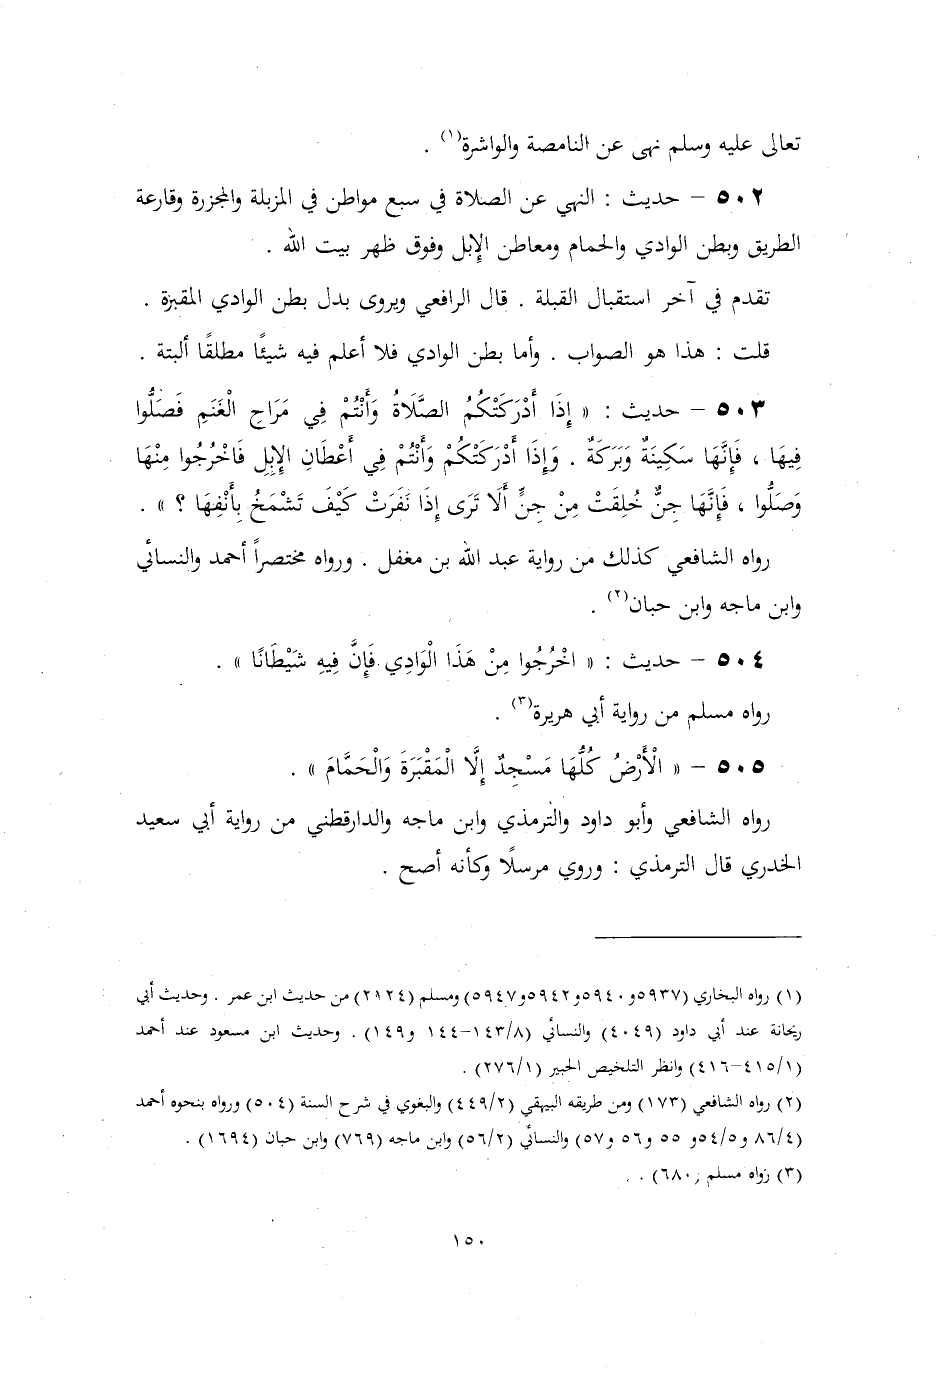 تعالى عليه وسلم نهى عن النامصة والواشرة(١) .
٥٠٢ – حديث : النهي عن الصلاة في سبع مواطن في المزبلة والمجزرة وقارعة
الطريق وبطن الوادي والحمام ومعاطن الإبل وفوق ظهر بيت الله .
تقدم في آخر استقبال القبلة . قال الرافعي ويروى بدل بطن الوادي المقبرة .
قلت : هذا هو الصواب . وأما بطن الوادي فلا أعلم فيه شيئًا مطلقًا ألبتة .
٥٠٣ – حديث : « إِذَا أَدْرَكَتْكُمُ الصَّلَاةُ وَأَنْتُمْ فِي مَرَاحِ الْغَنَمِ فَصَلُّوا
فِيهَا ، فَإِنَّهَا سَكِينَةٌ وَبَرَكَةٌ . وَإِذَا أَدْرَكَتْكُمْ وَأَنْتُمْ فِي أَعْطَانِ الإِبِلِ فَاخْرُجُوا مِنْهَا
وَصَلُّوا ، فَإِنَّهَا جِنٌّ خُلِقَتْ مِنْ جِنٍّ أَلَا تَرَى إِذَا نَفَرَتْ كَيْفَ تَشْمَخُ بِأَنْفِهَا ؟ » .
رواه الشافعي كذلك من رواية عبد الله بن مغفل . ورواه مختصراً أحمد والنسائي
وابن ماجه وابن حبان(٢) .
٥٠٤ – حديث : « اخْرُجُوا مِنْ هَذَا الْوَادِي فَإِنَّ فِيهِ شَيْطَانًا » .
رواه مسلم من رواية أبي هريرة(٣) .
٥٠٥ – « الْأَرْضُ كُلُّهَا مَسْجِدٌ إِلَّا الْمَقْبَرَةَ وَالْحَمَّامَ » .
رواه الشافعي وأبو داود والترمذي وابن ماجه والدارقطني من رواية أبي سعيد
الخدري قال الترمذي : وروي مرسلًا وكأنه أصح .
(١) رواه البخاري (٥٩٣٧و٥٩٤٠و٥٩٤٢و٥٩٤٧) ومسلم (٢١٢٤) من حديث ابن عمر . وحديث أبي
ريحانة عند أبي داود (٤٠٤٩) والنسائي (١٤٣/٨–١٤٤ و١٤٩) . وحديث ابن مسعود عند أحمد
(٤١٥/١–٤١٦) وانظر التلخيص الحبير (٢٧٦/١) .
(٢) رواه الشافعي (١٧٣) ومن طريقه البيهقي (٤٤٩/٢) والبغوي في شرح السنة (٥٠٤) ورواه بنحوه أحمد
(٨٦/٤ و٥٤/٥و ٥٥ و٥٦ و٥٧) والنسائي (٥٦/٢) وابن ماجه (٧٦٩) وابن حبان (١٦٩٤) .
(٣) رواه مسلم (٦٨٠) .
١٥٠